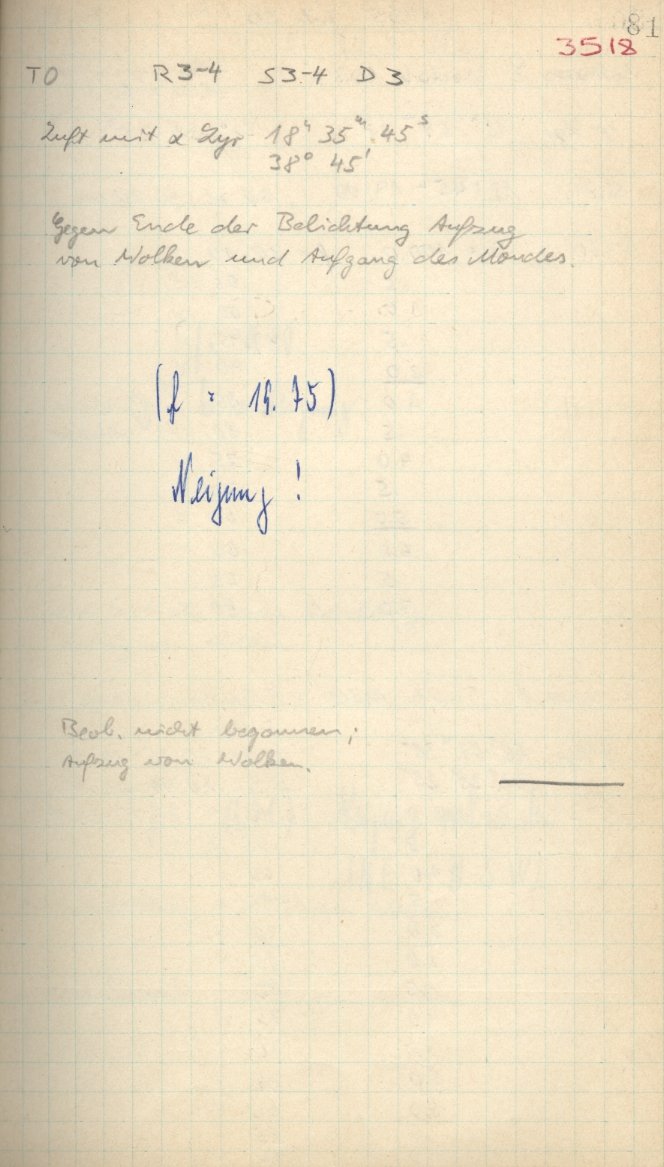 81
3518
TO R3-4 S3-4 D3
mit α Lyr 18ʰ 35ᵐ 45ˢ
38° 45'
Gegen Ende der Belichtung Aufzug
von Wolken und Aufgang des Mondes.
(f = 19.75)
Neigung !
Beob. nicht begonnen;
Aufzug von Wolken.